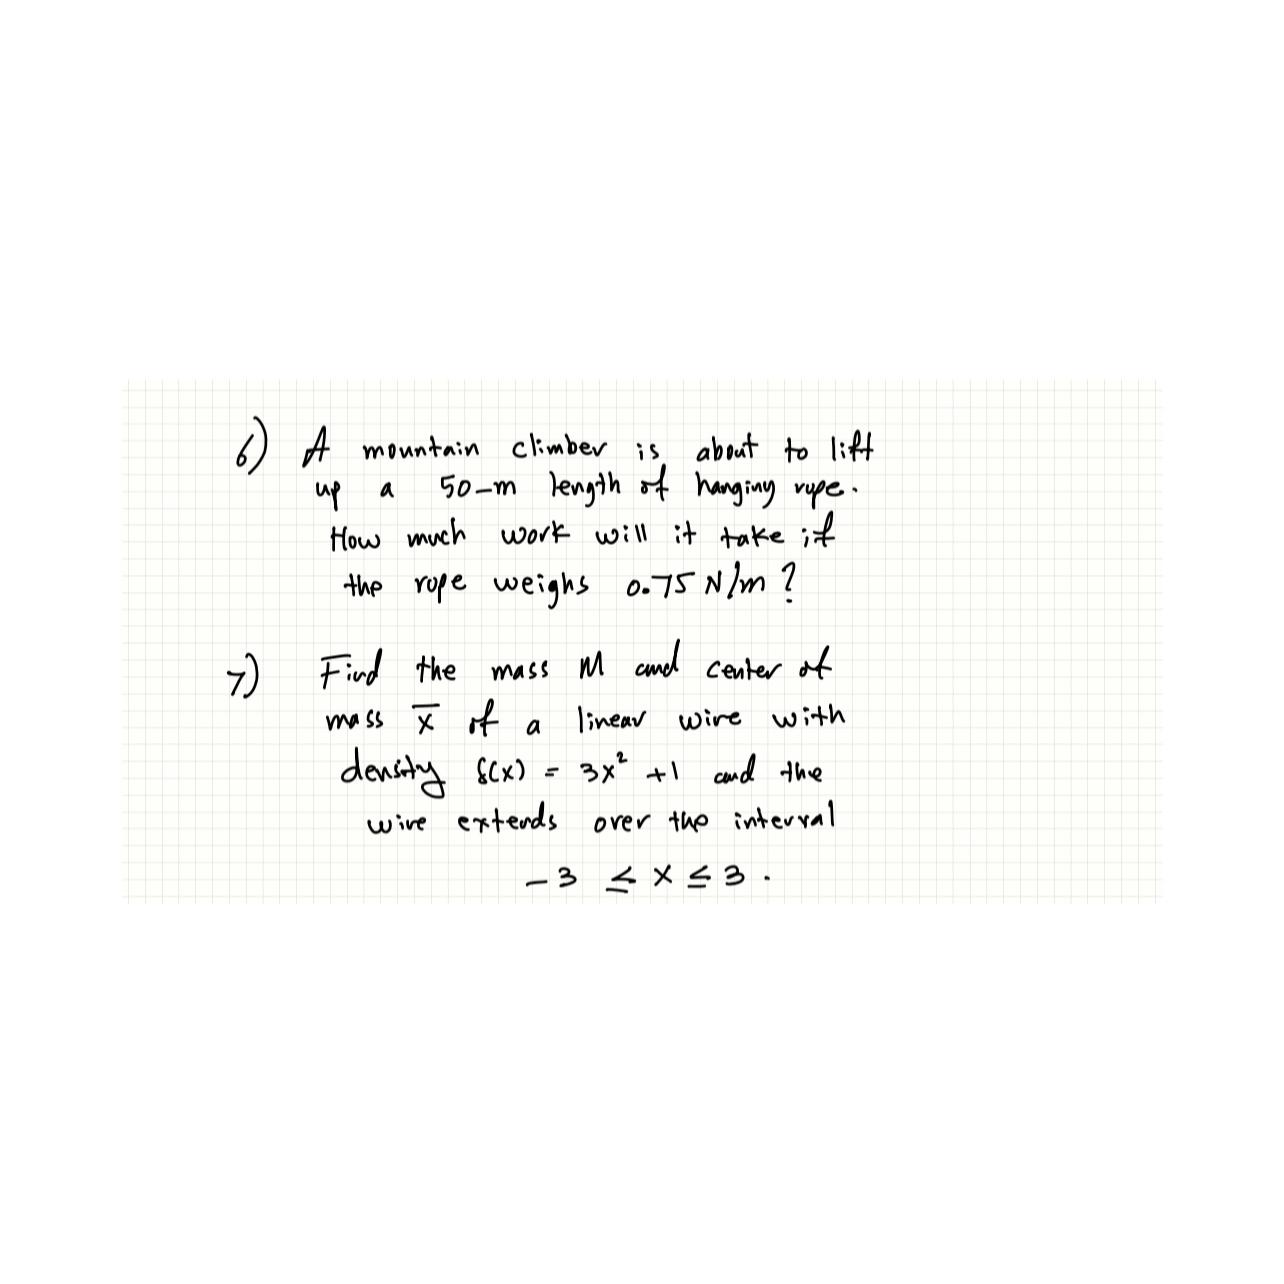 6) A mountain climber is about to lift
up a 50-m length of hanging rope.
How much work will it take if
the rope weighs 0.75 N/m?
7) Find the mass M and center of
mass x̅ of a linear wire with
density δ(x) = 3x² +1 and the
wire extends over the interval
-3 ≤ x ≤ 3.